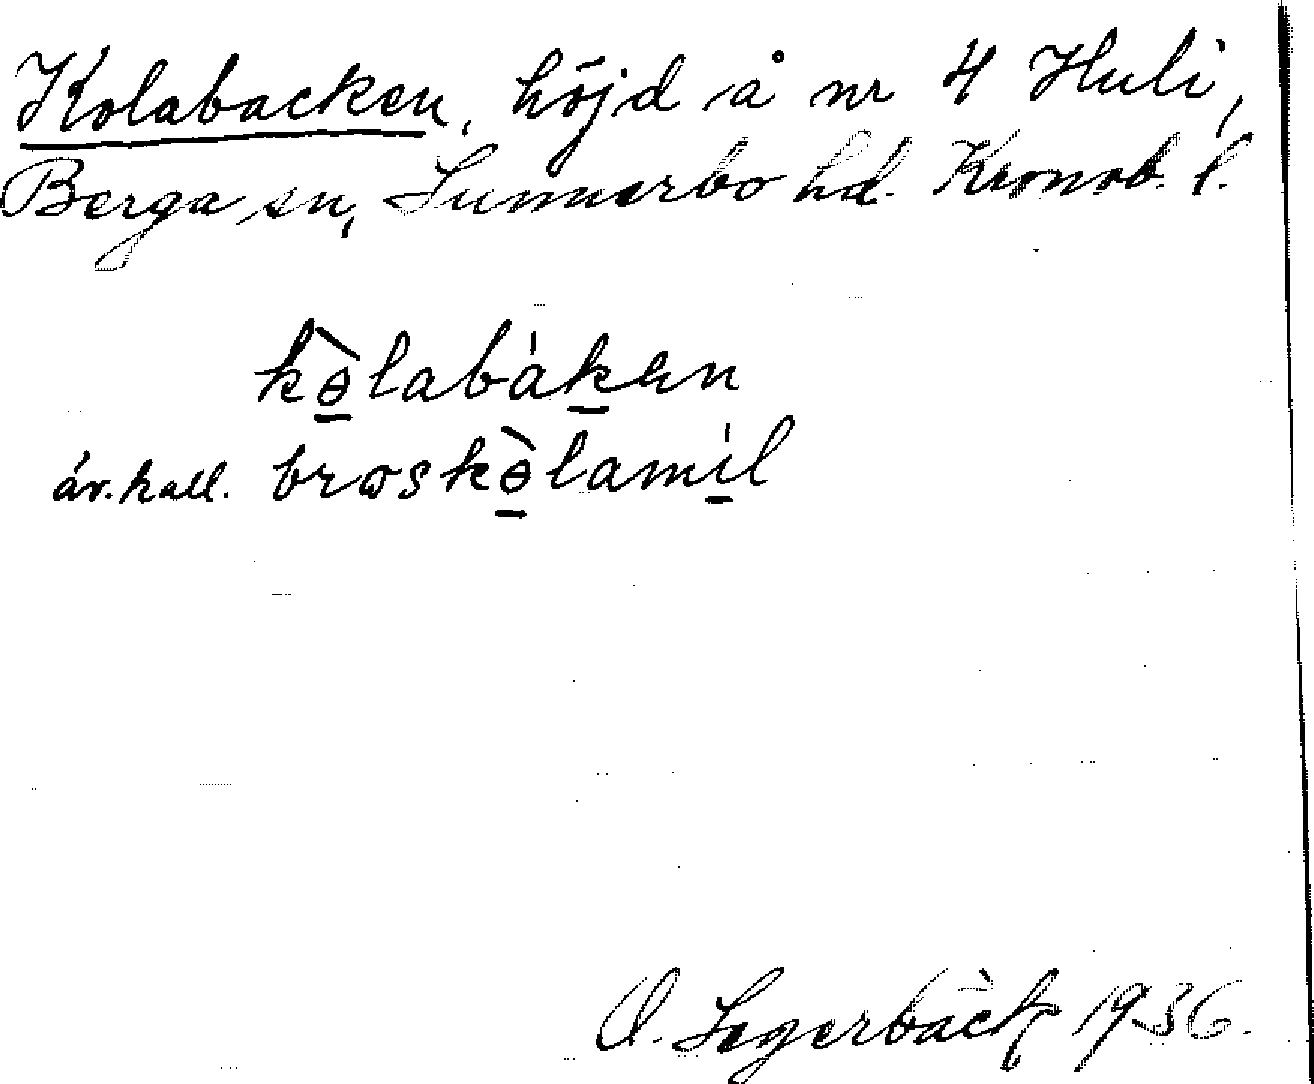 Kolabacken, höjd å nr 4 Huli,
Berga sn, Sunnerbo hd. Kronob. l.
kɵ̀labákɐn
äv. kall. brɷskɵ̀lamíl
O. Segerbäck 1936.